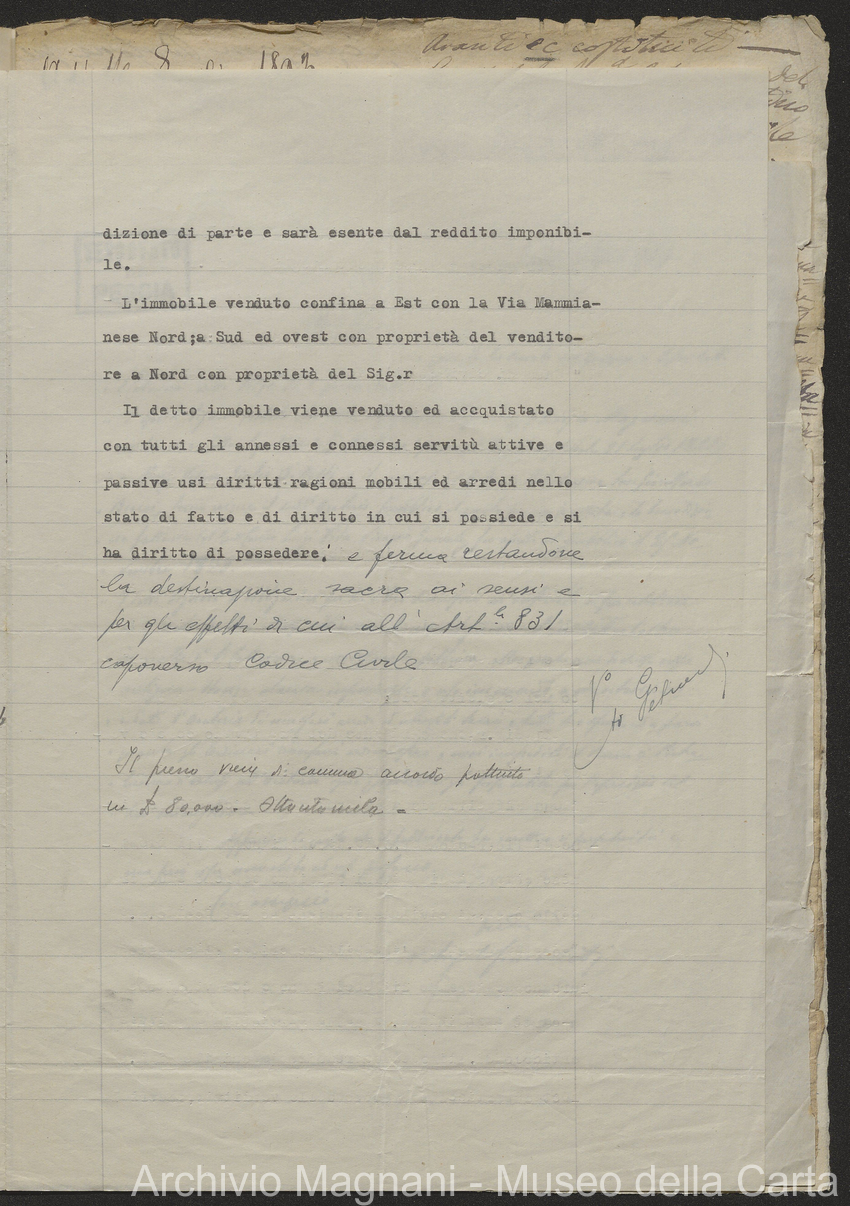 Avanti
dizione di parte e sarà esente dal reddito imponibi-
le.
L'immobile venduto confina a Est con la Via Mammia-
nese Nord;a Sud ed ovest con proprietà del vendito-
re a Nord con proprietà del Sig.r
Il detto immobile viene venduto ed accquistato
con tutti gli annessi e connessi servitù attive e
passive usi diritti ragioni mobili ed arredi nello
stato di fatto e di diritto in cui si possiede e si
ha diritto di possedere. e ferma restandone
la destinazione sacra ai sensi e
per gli effetti di cui all' Art. 831
capoverso Codice Civile
Il prezzo vien di comune accordo pattuito
in £ 80,000 - Ottantamila =
Archivio Magnani - Museo della Carta